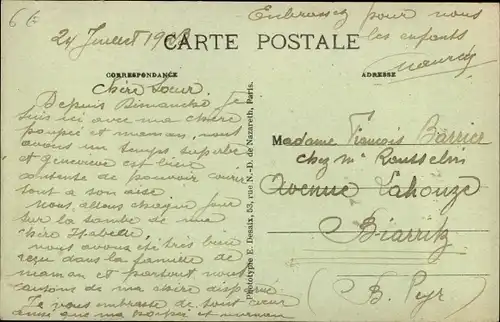 6 €
24 Juillet 19
Embrassez pour nous
les enfants
Maurice
CARTE POSTALE
CORRESPONDANCE
ADRESSE
Chère Sœur.
Depuis Dimanche je
suis ici avec ma chère
poupée et maman, nous
avons un temps superbe
et Geneviève est bien
contente de pouvoir courir
tout a son aise
Nous allons chaque jour
sur la tombe de ma
chère Isabelle.
nous avons été très bien
reçu dans la famille de
maman et partout nous
causons de ma chère disparue
Je vous embrasse de tout cœur
ainsi que ma poupée et maman
Phototypie E. Desaix, 53, rue N.-D. de Nazareth, Paris.
Madame François Barrier
chez Mr Rousselin
Avenue Lahouze
Biarritz
(B. Pyr)